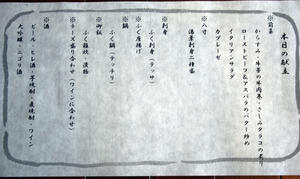 本日の献立
※前菜
からすみ・牛蒡の牛肉巻・さしみタラコの煮り
ローストビーフ&アスパラのバター炒め
イタリアンサラダ
カプレーゼ
※八寸
湯葉刺身二種盛
※刺身
ふく刺身（テッサ）
※ふく唐揚げ
※鍋
ふく鍋（テッチリ）
※御飯
ふく雑炊・漬物
※チーズ盛り合わせ（ワインに合わせ）
※酒
ビール・ヒレ酒・芋焼酎・麦焼酎・ワイン
大吟醸・ニゴリ酒